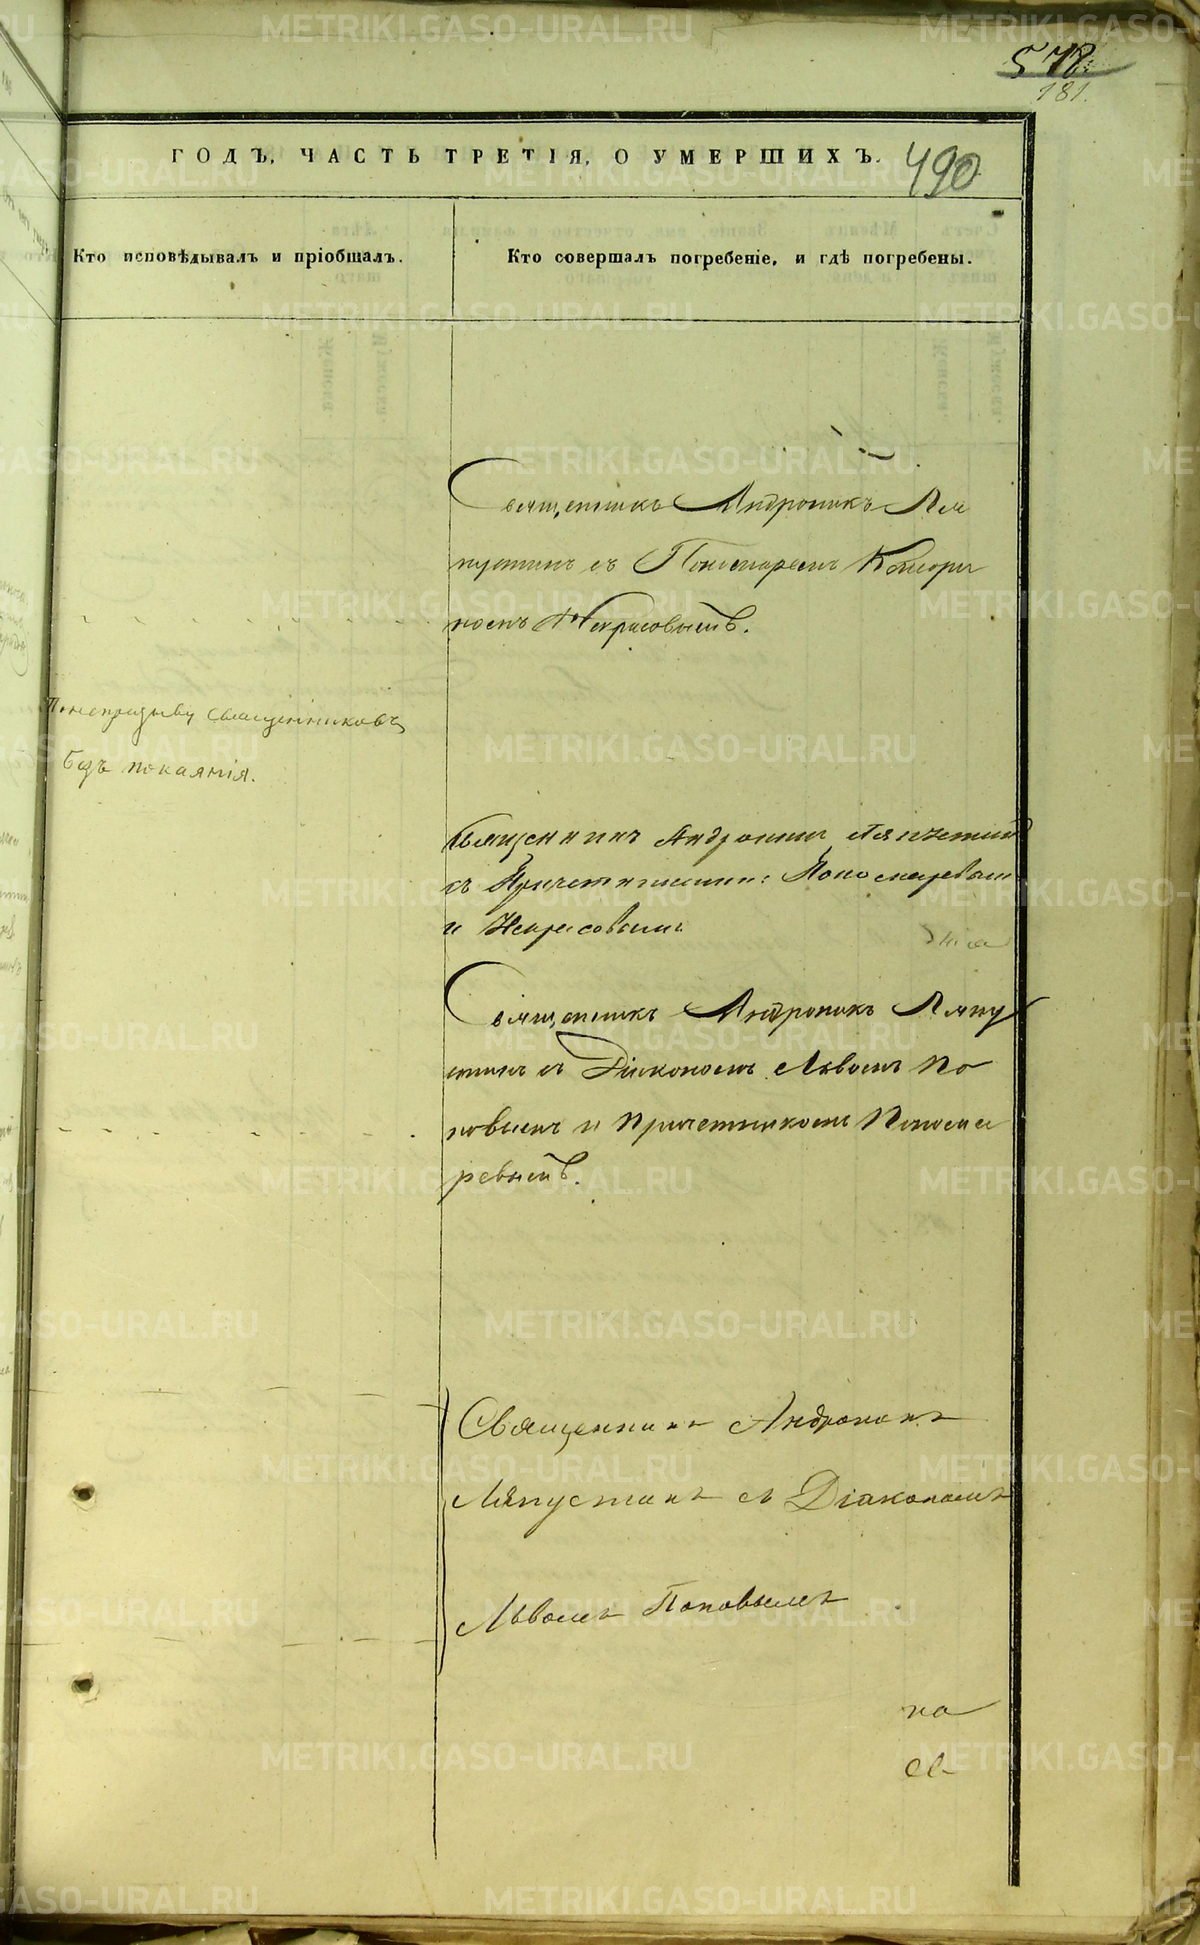 578.
181.
ГОДЪ, ЧАСТЬ ТРЕТІЯ, О УМЕРШИХЪ.
490
Кто исповѣдывалъ и пріобщалъ.
Кто совершалъ погребеніе, и гдѣ погребены.
Священникъ Андроникъ Ля
пустинъ съ Пономаремъ
Некрасовымъ.
священниковъ
безъ покаянія.
Священникъ Андроникъ Ляпустинъ
съ Причетниками: Пономаревым
и Некрасовымъ
Священникъ Андроникъ Ляпу
стинъ съ Діакономъ Львомъ По
повымъ и Причетникомъ Понома
ревымъ.
Священникъ Андроникъ
Ляпустинъ съ Діакономъ
Львомъ Поповымъ
METRIKI.GASO-URAL.RU